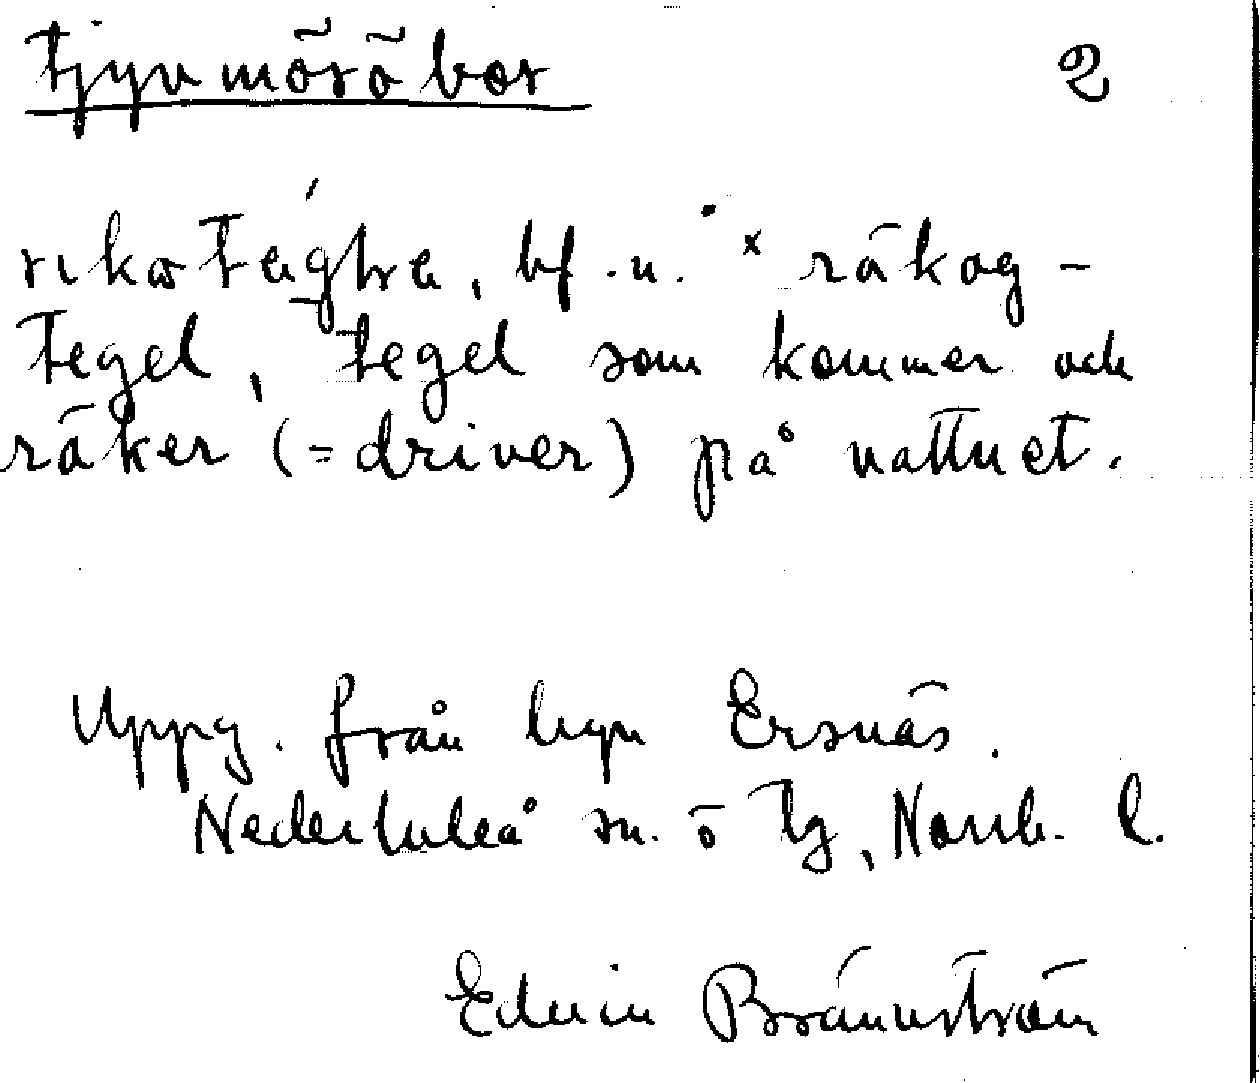 tjyvmörö bor 2
rikotégłre, bf. n. × räkog-
tegel, tegel som kommer och
räker (= driver) på vattnet.
Uppg. från byn Ersnäs.
Nederluleå sn. ö tg, Norrb. l.
Edvin Brännström